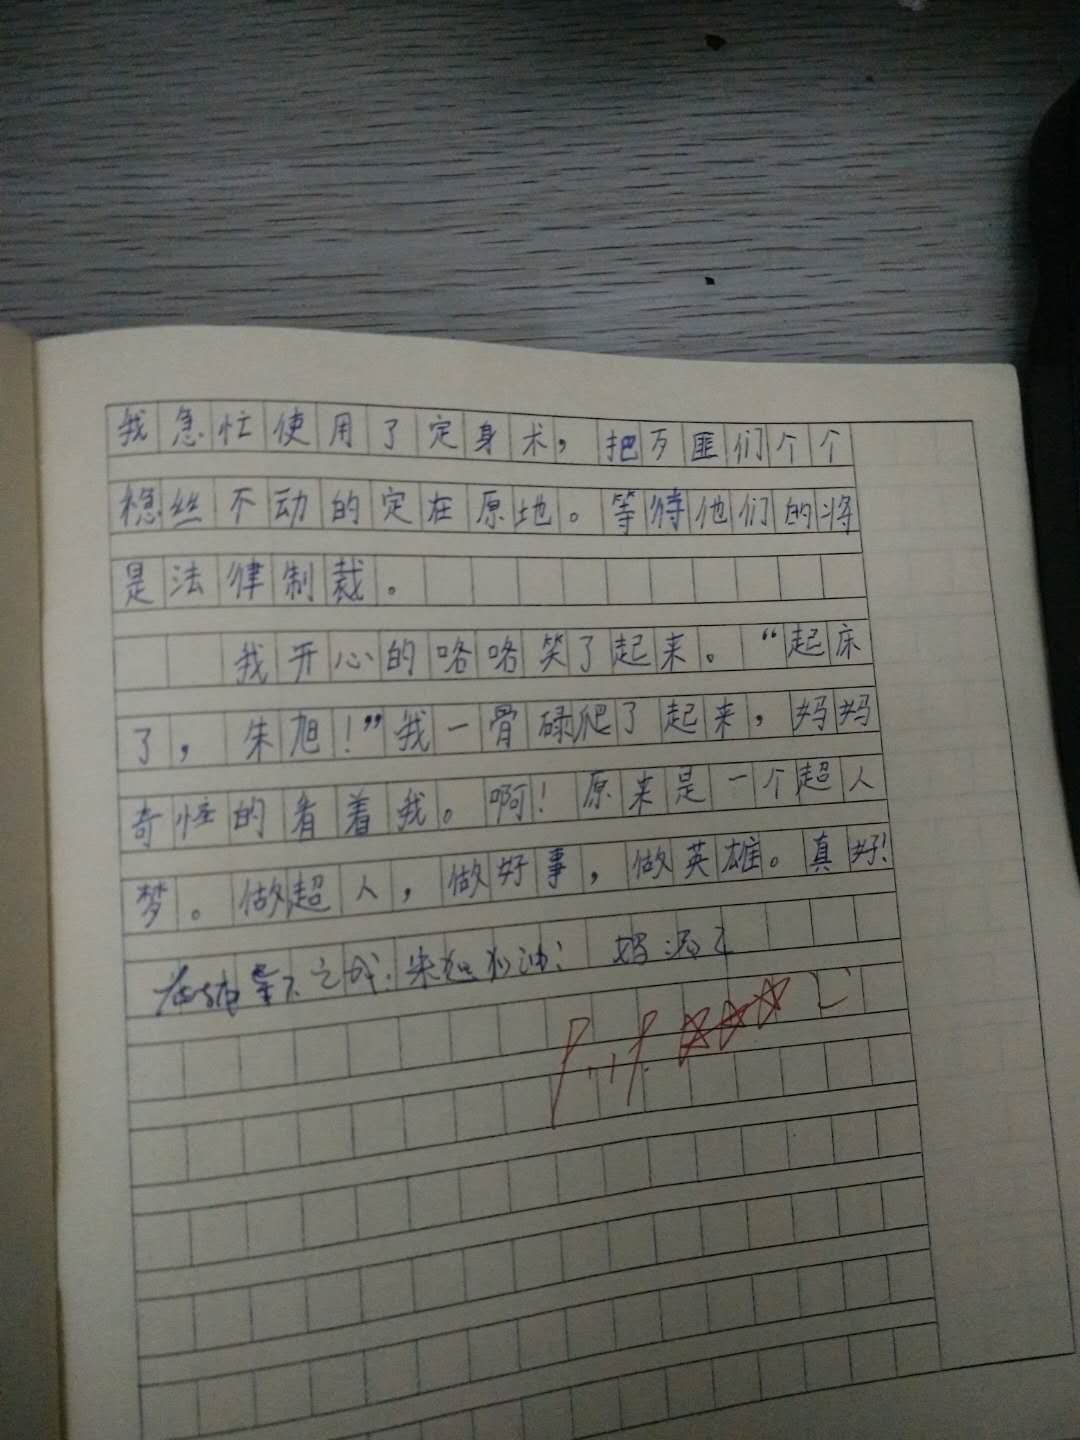 我急忙使用了定身术，把歹匪们个个
稳丝不动的定在原地。等待他们的将
是法律制裁。
我开心的咯咯笑了起来。“起床
了，朱旭！”我一骨碌爬了起来，妈妈
奇怪的看着我。啊！原来是一个超人
梦。做超人，做好事，做英雄。真好！
之战